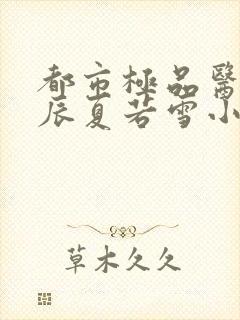 都市極品醫
辰夏若雪小
草木久久